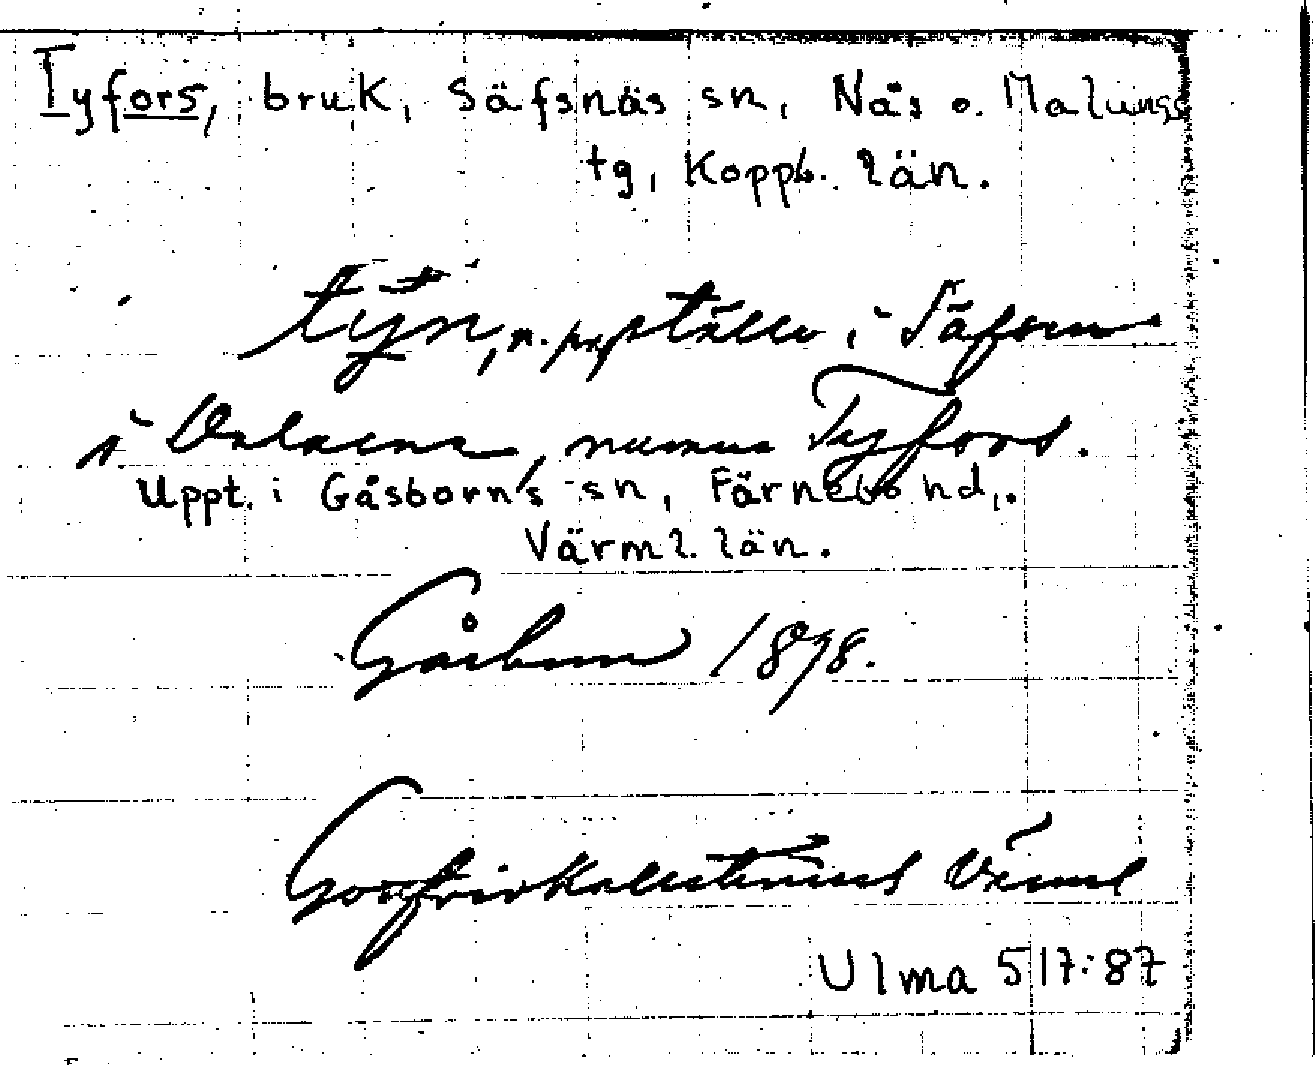 Tyfors, bruk, Säfsnäs sn, Nås o. Malungs
tg, Koppb. län.
tyn, n. pr, ställe i Säfsen
i Dalarne, numera Tyfors.
Uppt. i Gåsborn's sn, Färnebo hd,.
Värml. län.
Gåsborn 1898.
Gottfrid Kallstenius Värml
Ulma 517:87